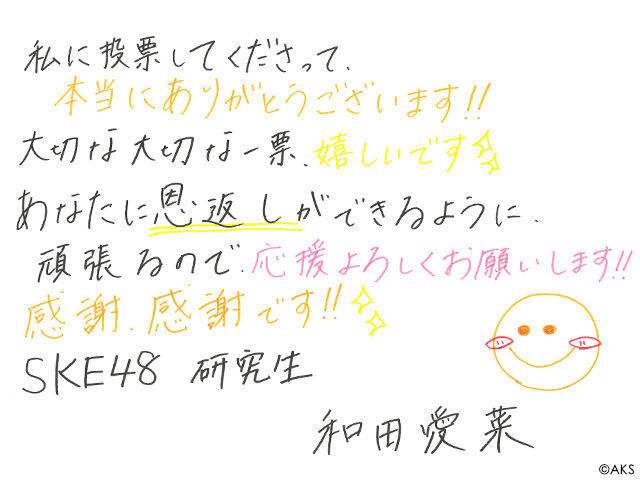 私に投票してくださって、
本当にありがとうございます!!
大切な大切な一票、嬉しいです
あなたに恩返しができるように、
頑張るので、応援よろしくお願いします!!
感謝、感謝です!!
SKE48 研究生
和田愛菜
©AKS